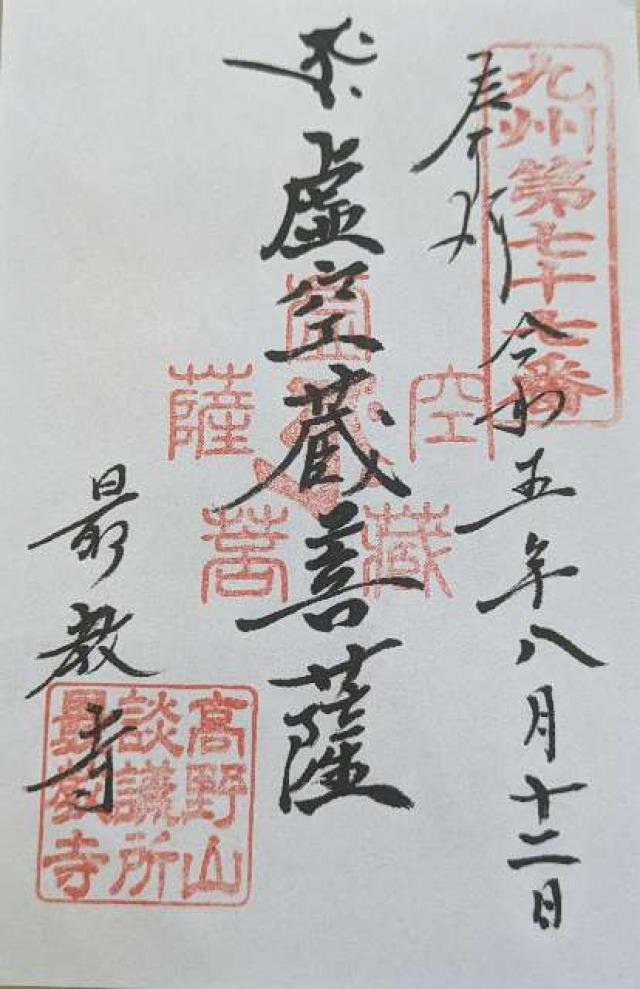 九州第七十七番
奉拝 令和五年八月十二日
虚空蔵菩薩
虚空藏菩薩
最教寺
高野山
談議所
最教寺